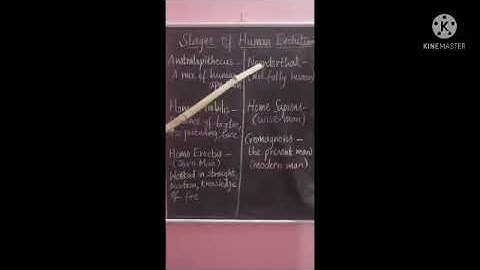 Stages of Human Evolution
Australopithecus -
A mix of human
Homo
of bigger
face
Homo Erectus -
(Java Man)
Walked in straight
position, knowledge
of fire
Neanderthal -
(not fully human)
Homo Sapiens -
(wise man)
Cromagnons -
the present man
(modern man)
KINEMASTER